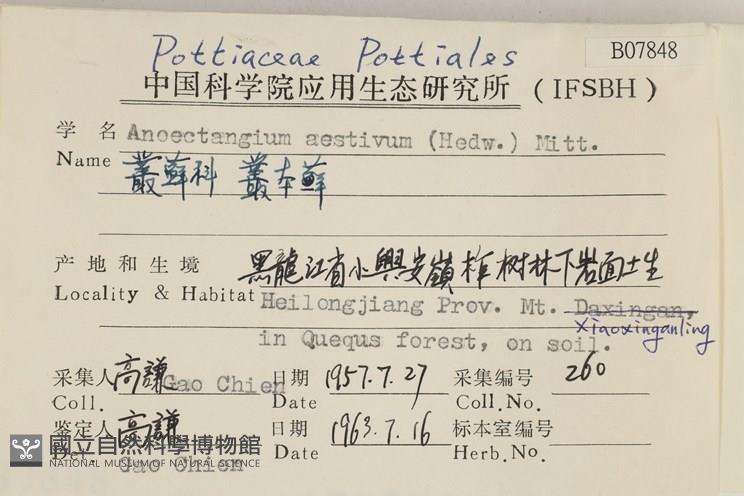 Pottiaceae Pottiales
B07848
中国科学院应用生态研究所 (IFSBH)
学名 Anoectangium aestivum (Hedw.) Mitt.
Name 叢蘚科 叢本蘚
产地和生境 黑龍江省小興安嶺柞树林下岩面土生
Locality & Habitat Heilongjiang Prov. Mt. Daxingan,
Xiaoxinganling
in Quequs forest, on soil.
采集人 高謙 Gao Chien 日期 1957.7.27 采集编号 260
Coll. Date Coll.No.
鉴定人 高謙 日期 1963.7.16 标本室编号
Det. Gao Chien Date Herb.No.
國立自然科學博物館
NATIONAL MUSEUM OF NATURAL SCIENCE